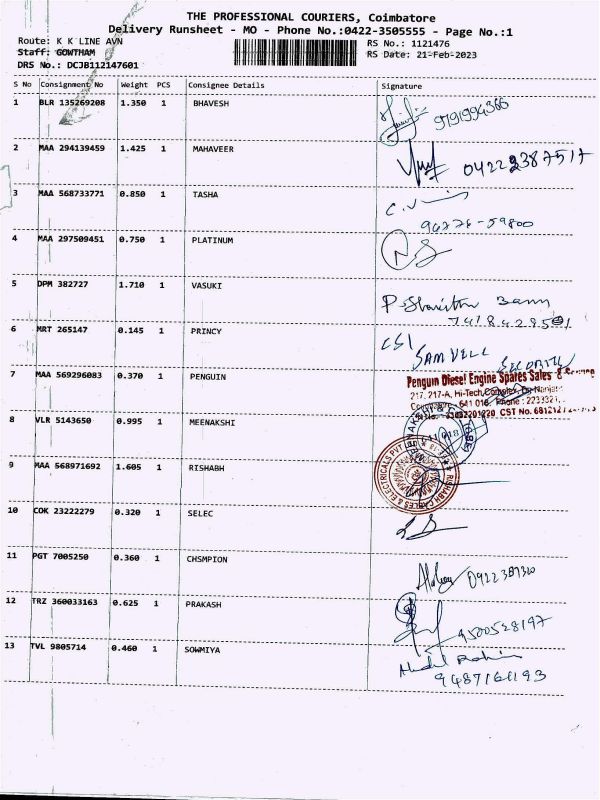 THE PROFESSIONAL COURIERS, Coimbatore
Delivery Runsheet - MO - Phone No.:0422-3505555 - Page No.:1
Route: K K LINE AVN
RS No.: 1121476
Staff: GOWTHAM
RS Date: 21-Feb-2023
DRS No.: DCJB112147601
S No Consignment No Weight PCS Consignee Details Signature
1 BLR 135269208 1.350 1 BHAVESH
2 MAA 294139459 1.425 1 MAHAVEER
04222387517
3 MAA 568733771 0.850 1 TASHA
96776-59800
4 MAA 297509451 0.750 1 PLATINUM
5 DPM 382727 1.710 1 VASUKI
6 MRT 265147 0.145 1 PRINCY
CSI SAMVELL SECORITY
7 MAA 569296083 0.370 1 PENGUIN
Penguin Diesel Engine Spares Sales & Service
217, 217-A, Hi-Tech
641 018. Phone :
CST No.
8 VLR 5143650 0.995 1 MEENAKSHI
9 MAA 568971692 1.605 1 RISHABH
RISHABH CABLES & ELECTRICALS PVT
10 COK 23222279 0.320 1 SELEC
11 PGT 7005250 0.360 1 CHSMPION
12 TRZ 360033163 0.625 1 PRAKASH
9500528197
13 TVL 9805714 0.460 1 SOWMIYA